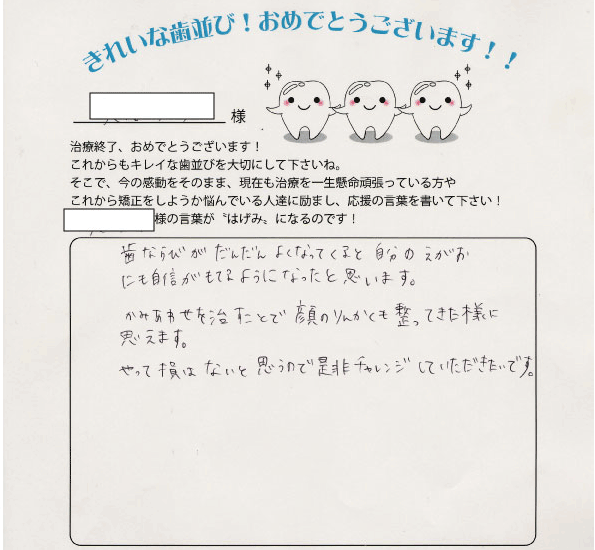 きれいな歯並び！おめでとうございます！！
様
治療終了、おめでとうございます！
これからもキレイな歯並びを大切にして下さいね。
そこで、今の感動をそのまま、現在も治療を一生懸命頑張っている方や
これから矯正をしようか悩んでいる人達に励まし、応援の言葉を書いて下さい！
様の言葉が〝はげみ〟になるのです！
歯ならびがだんだんよくなってくると自分のえがお
にも自信がもてるようになったと思います。
かみあわせを治すことで顔のりんかくも整ってきた様に
思えます。
やって損はないと思うので是非チャレンジしていただきたいです。